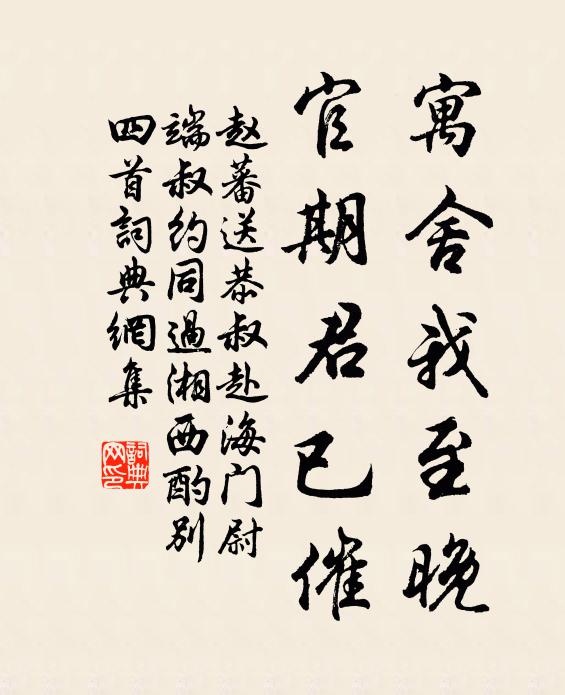 寓舍我至晚
官期君已催
赵蕃送恭叔赴海门尉
端叔约同過湘西酌别
四首詞典網集
詞典网印